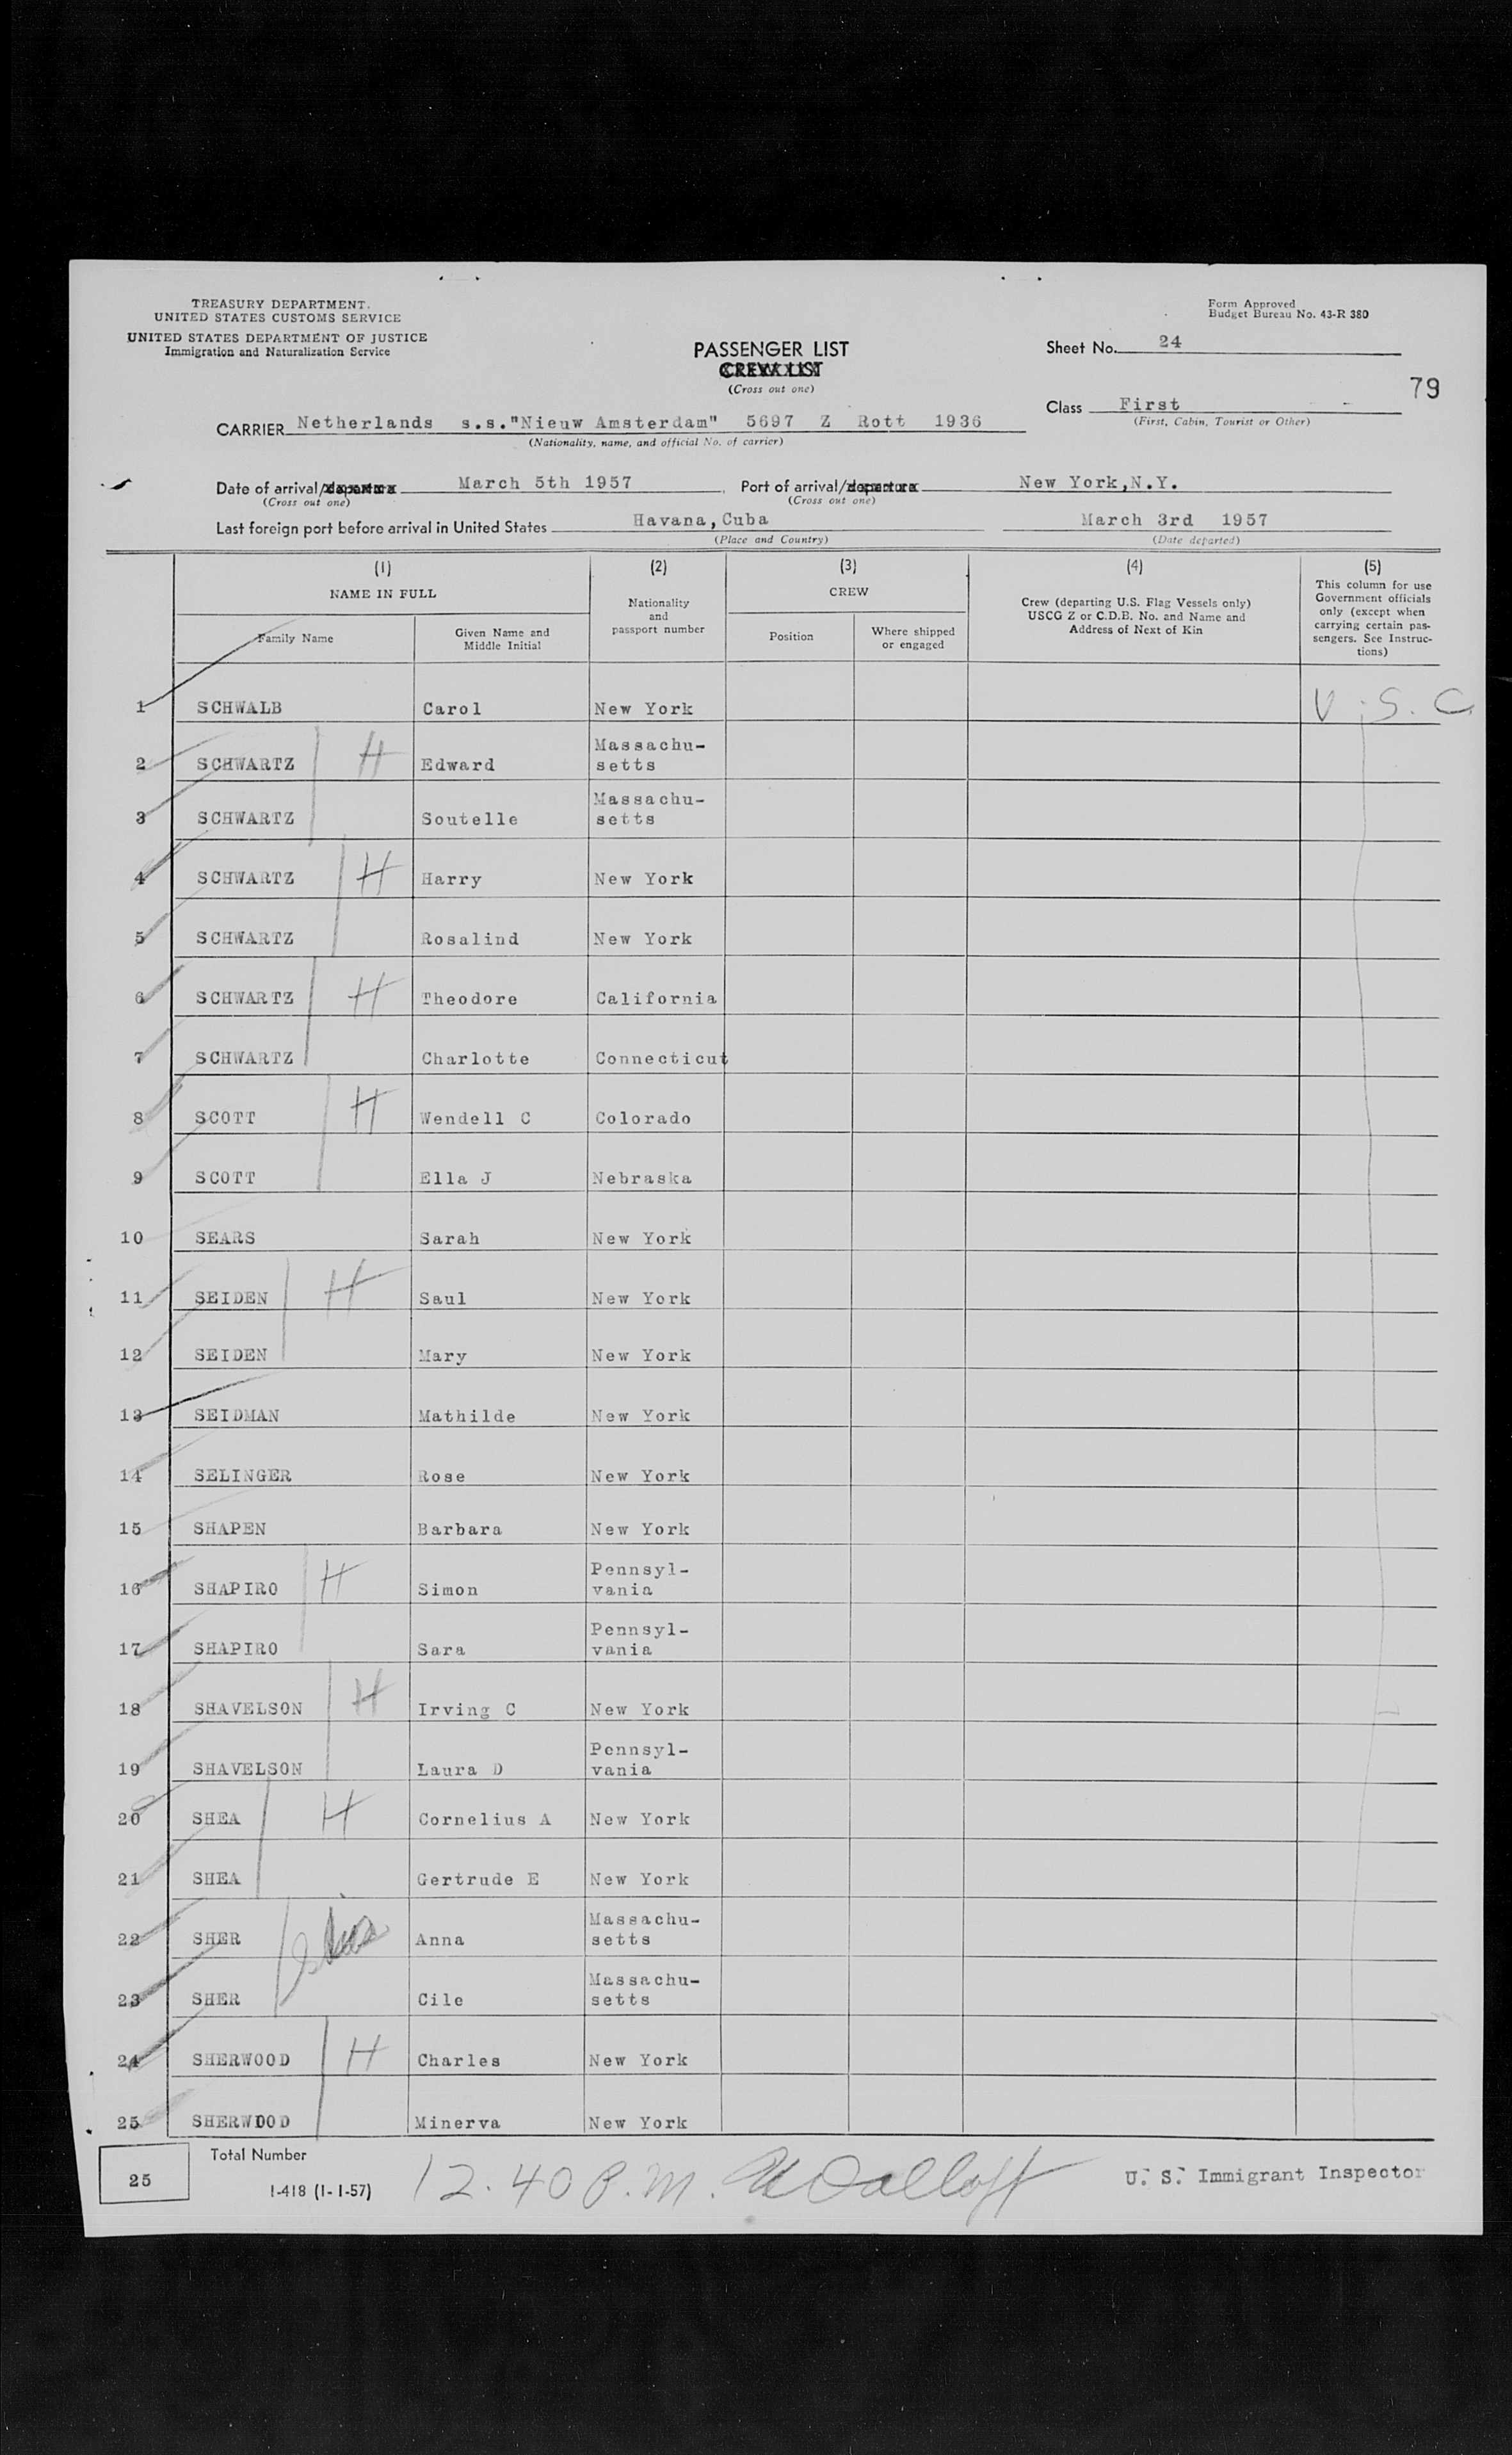 TREASURY DEPARTMENT.
UNITED STATES CUSTOMS SERVICE
UNITED STATES DEPARTMENT OF JUSTICE
Immigration and Naturalization Service
Form Approved
Budget Bureau No. 43-R 380
PASSENGER LIST
CREW LIST
(Cross out one)
Sheet No. 24
79
Class First
(First, Cabin, Tourist or Other)
CARRIER Netherlands s.s."Nieuw Amsterdam" 5697 Z Rott 1936
(Nationality, name, and official No. of carrier)
Date of arrival/departure March 5th 1957 Port of arrival/departure New York,N.Y.
(Cross out one) (Cross out one)
Last foreign port before arrival in United States Havana,Cuba March 3rd 1957
(Place and Country) (Date departed)
(1) (2) (3) (4) (5)
NAME IN FULL
Family Name
Given Name and Middle Initial
Nationality and passport number
CREW
Position
Where shipped or engaged
Crew (departing U.S. Flag Vessels only)
USCG Z or C.D.B. No. and Name and
Address of Next of Kin
This column for use
Government officials
only (except when
carrying certain pas-
sengers. See Instruc-
tions)
1 SCHWALB Carol New York U.S.C
2 SCHWARTZ H Edward Massachu-
setts
3 SCHWARTZ Soutelle Massachu-
setts
4 SCHWARTZ H Harry New York
5 SCHWARTZ Rosalind New York
6 SCHWARTZ H Theodore California
7 SCHWARTZ Charlotte Connecticut
8 SCOTT H Wendell C Colorado
9 SCOTT Ella J Nebraska
10 SEARS Sarah New York
11 SEIDEN H Saul New York
12 SEIDEN Mary New York
13 SEIDMAN Mathilde New York
14 SELINGER Rose New York
15 SHAPEN Barbara New York
16 SHAPIRO H Simon Pennsyl-
vania
17 SHAPIRO Sara Pennsyl-
vania
18 SHAVELSON H Irving C New York
19 SHAVELSON Laura D Pennsyl-
vania
20 SHEA H Cornelius A New York
21 SHEA Gertrude E New York
22 SHER Anna Massachu-
setts
23 SHER Cile Massachu-
setts
24 SHERWOOD H Charles New York
25 SHERWOOD Minerva New York
25
Total Number
I-418 (1-1-57)
12.40 P.M.
U. S. Immigrant Inspector